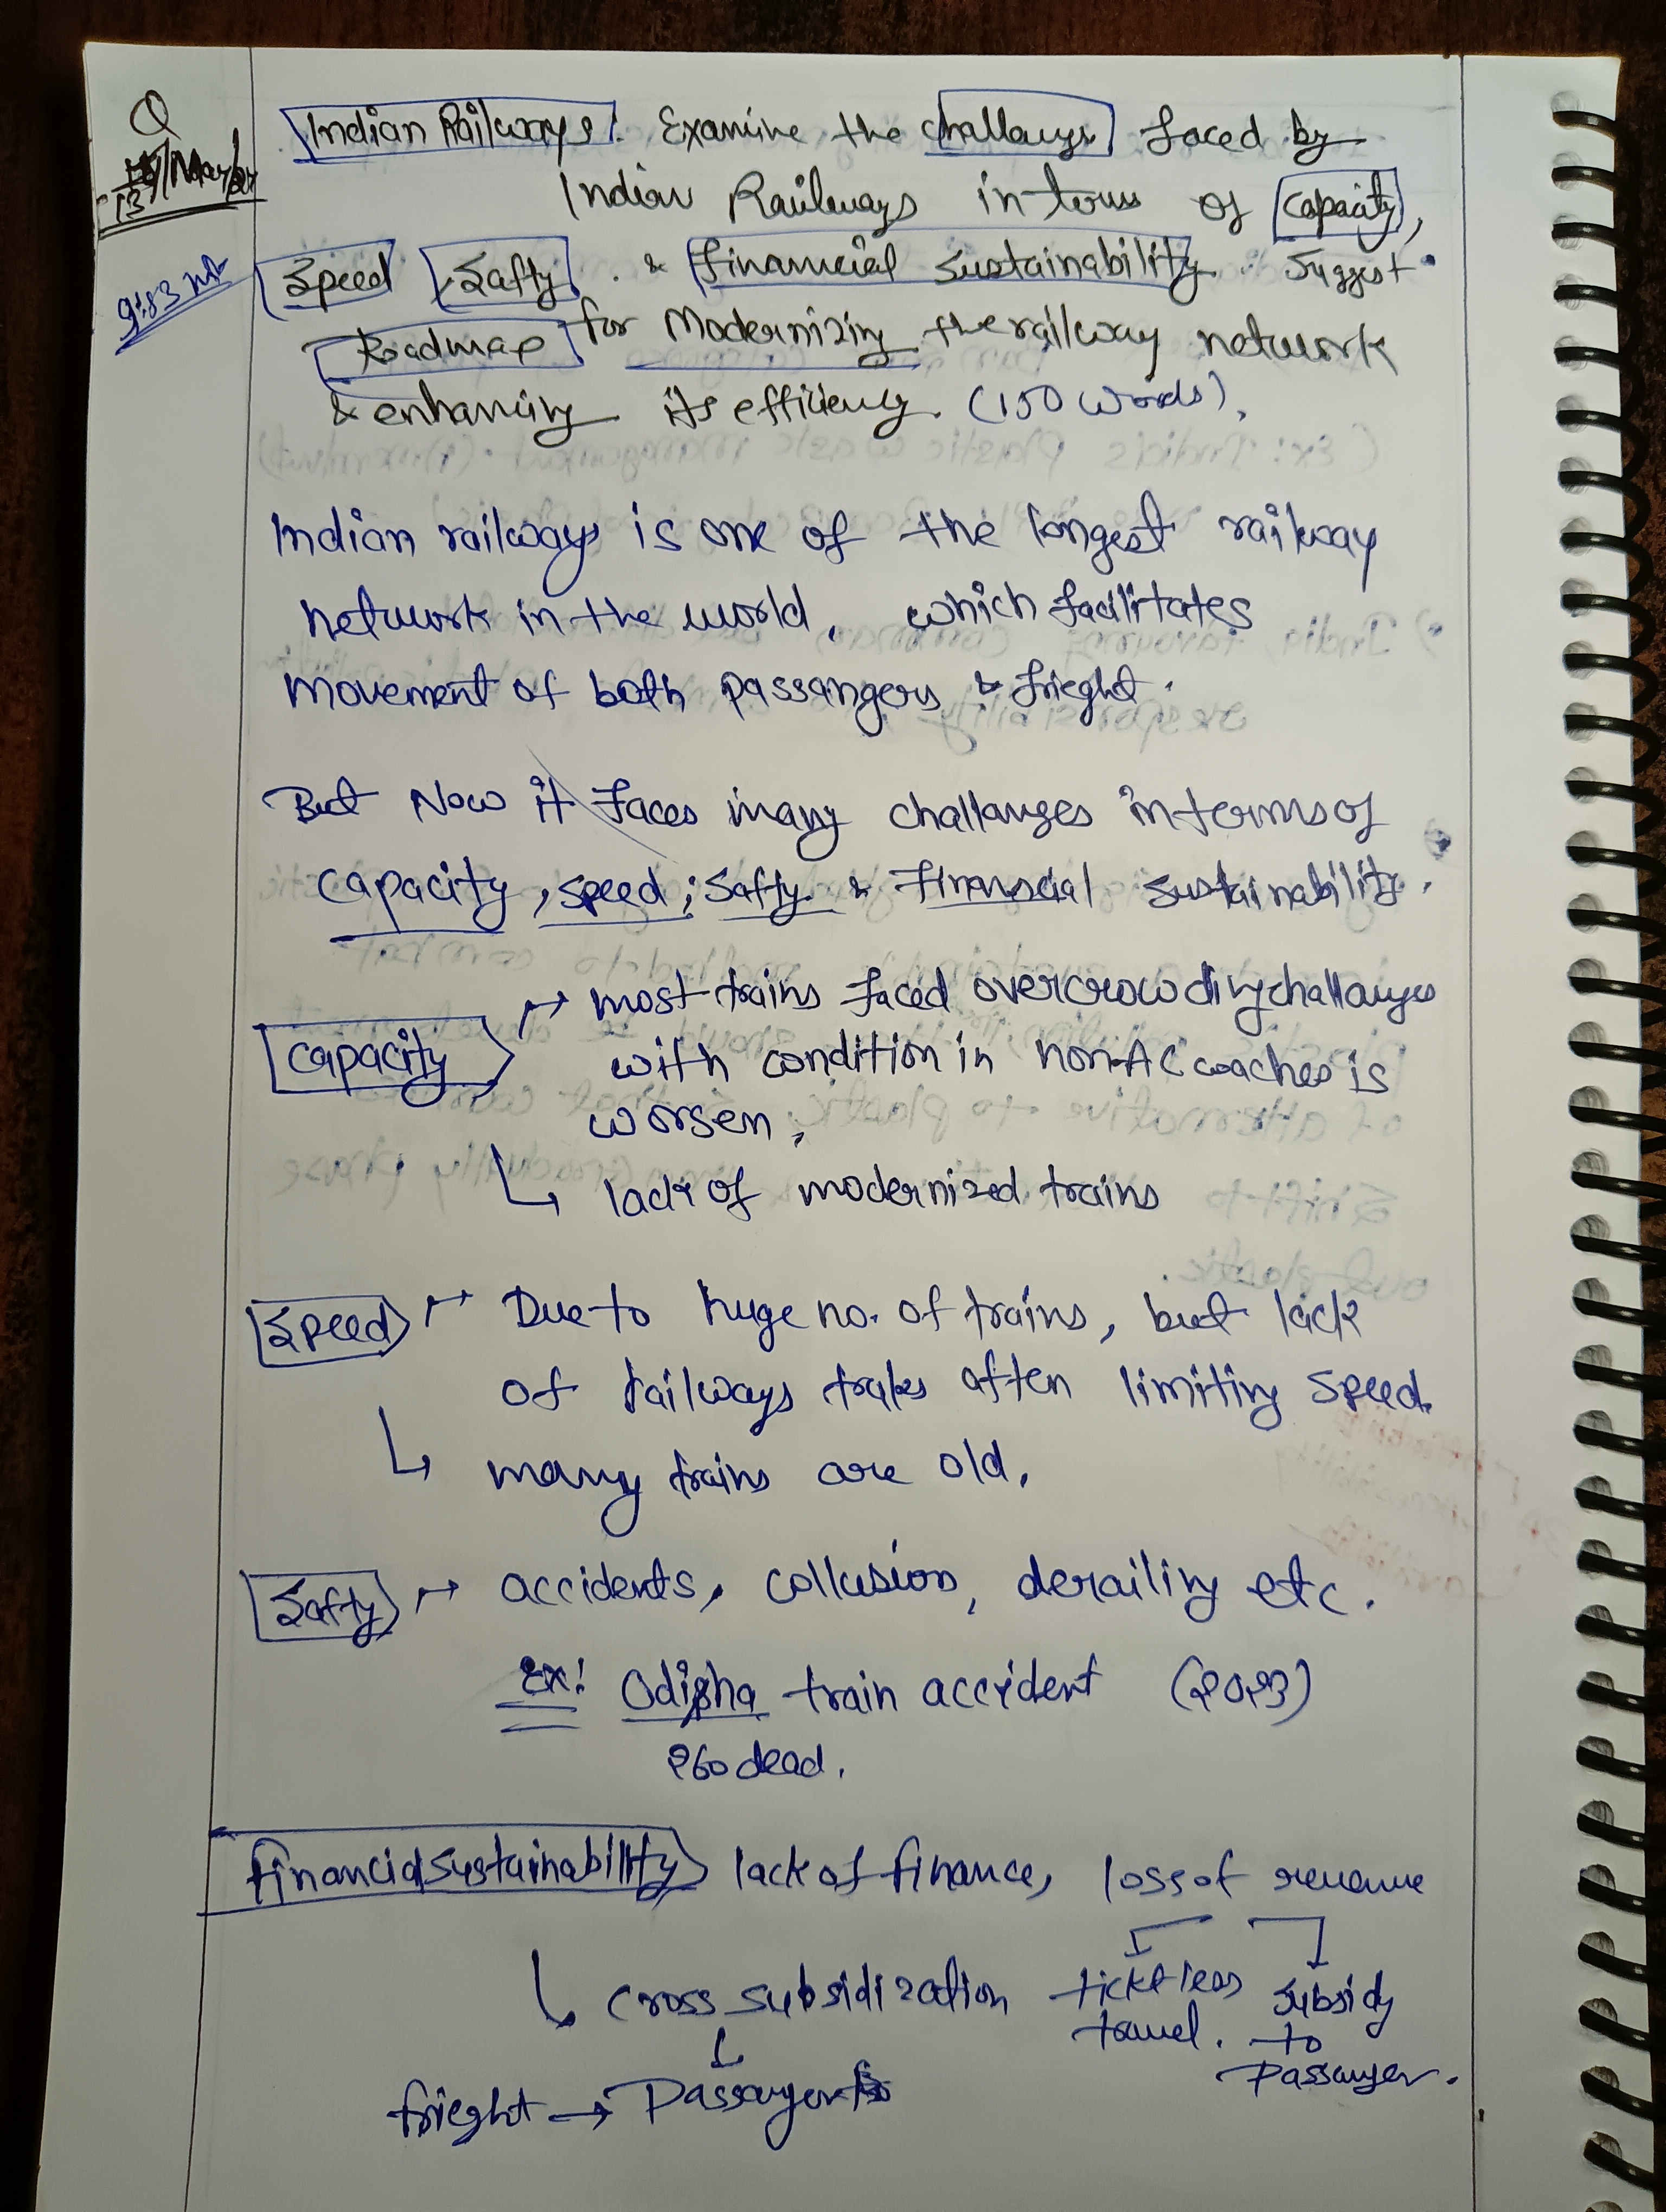 Q
13/May/24
Indian Railways: Examine the challanges faced by
Indian Railways in terms of capacity,
speed, safty, & financial sustainability. Suggest
Roadmap for Modernizing the railway network
& enhancing its efficiency. (150 words).
Indian railways is one of the longest railway
network in the world, which facilitates
movement of both passangers & frieght.
But Now it faces many challanges in terms of
capacity, speed, safty & Financial sustainability.
capacity → most trains faced overcrowding challanges
with condition in non-AC coaches is
worsen,
↳ lack of modernized trains
speed → Due to huge no. of trains, but lack
of railways traks often limiting speed.
↳ many trains are old.
safty → accidents, collusion, derailing etc.
Ex: Odisha train accident (2023)
260 dead.
financial sustainability lack of finance, loss of revenue
↳ cross subsidization ticktless subsidy
travel. to
Passanger.
frieght → Passanger